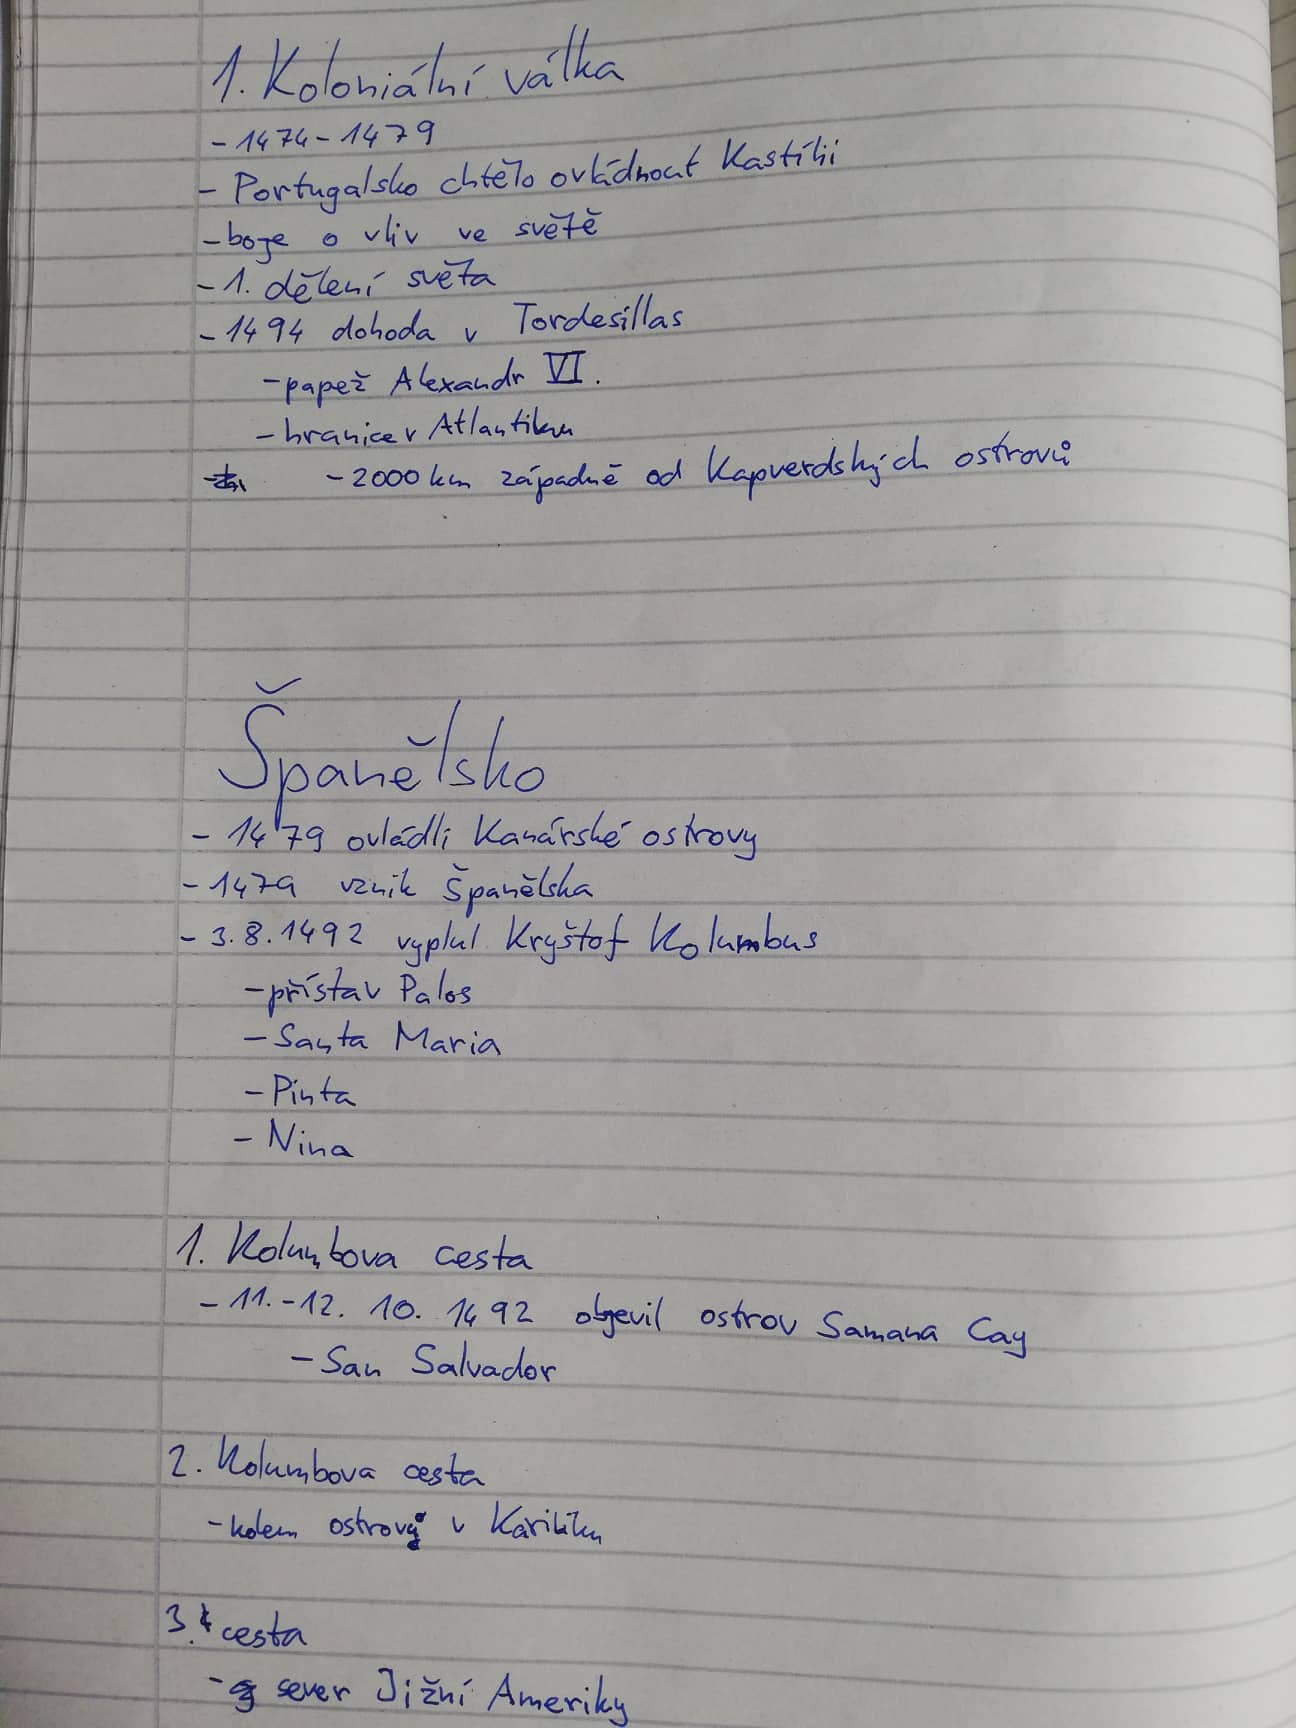 1. Koloniální válka
- 1474 - 1479
- Portugalsko chtělo ovládnout Kastílii
- boje o vliv ve světě
- 1. dělení světa
- 1494 dohoda v Tordesillas
- papež Alexandr VI.
- hranice v Atlantiku
- 2000 km západně od Kapverdských ostrovů
Španělsko
- 1479 ovládli Kanárské ostrovy
- 1479 vznik Španělska
- 3. 8. 1492 vyplul Kryštof Kolumbus
- přístav Palos
- Santa Maria
- Pinta
- Nina
1. Kolumbova cesta
- 11. - 12. 10. 1492 objevil ostrov Samana Cay
- San Salvador
2. Kolumbova cesta
- kolem ostrovy v Karibiku
3. cesta
- sever Jižní Ameriky